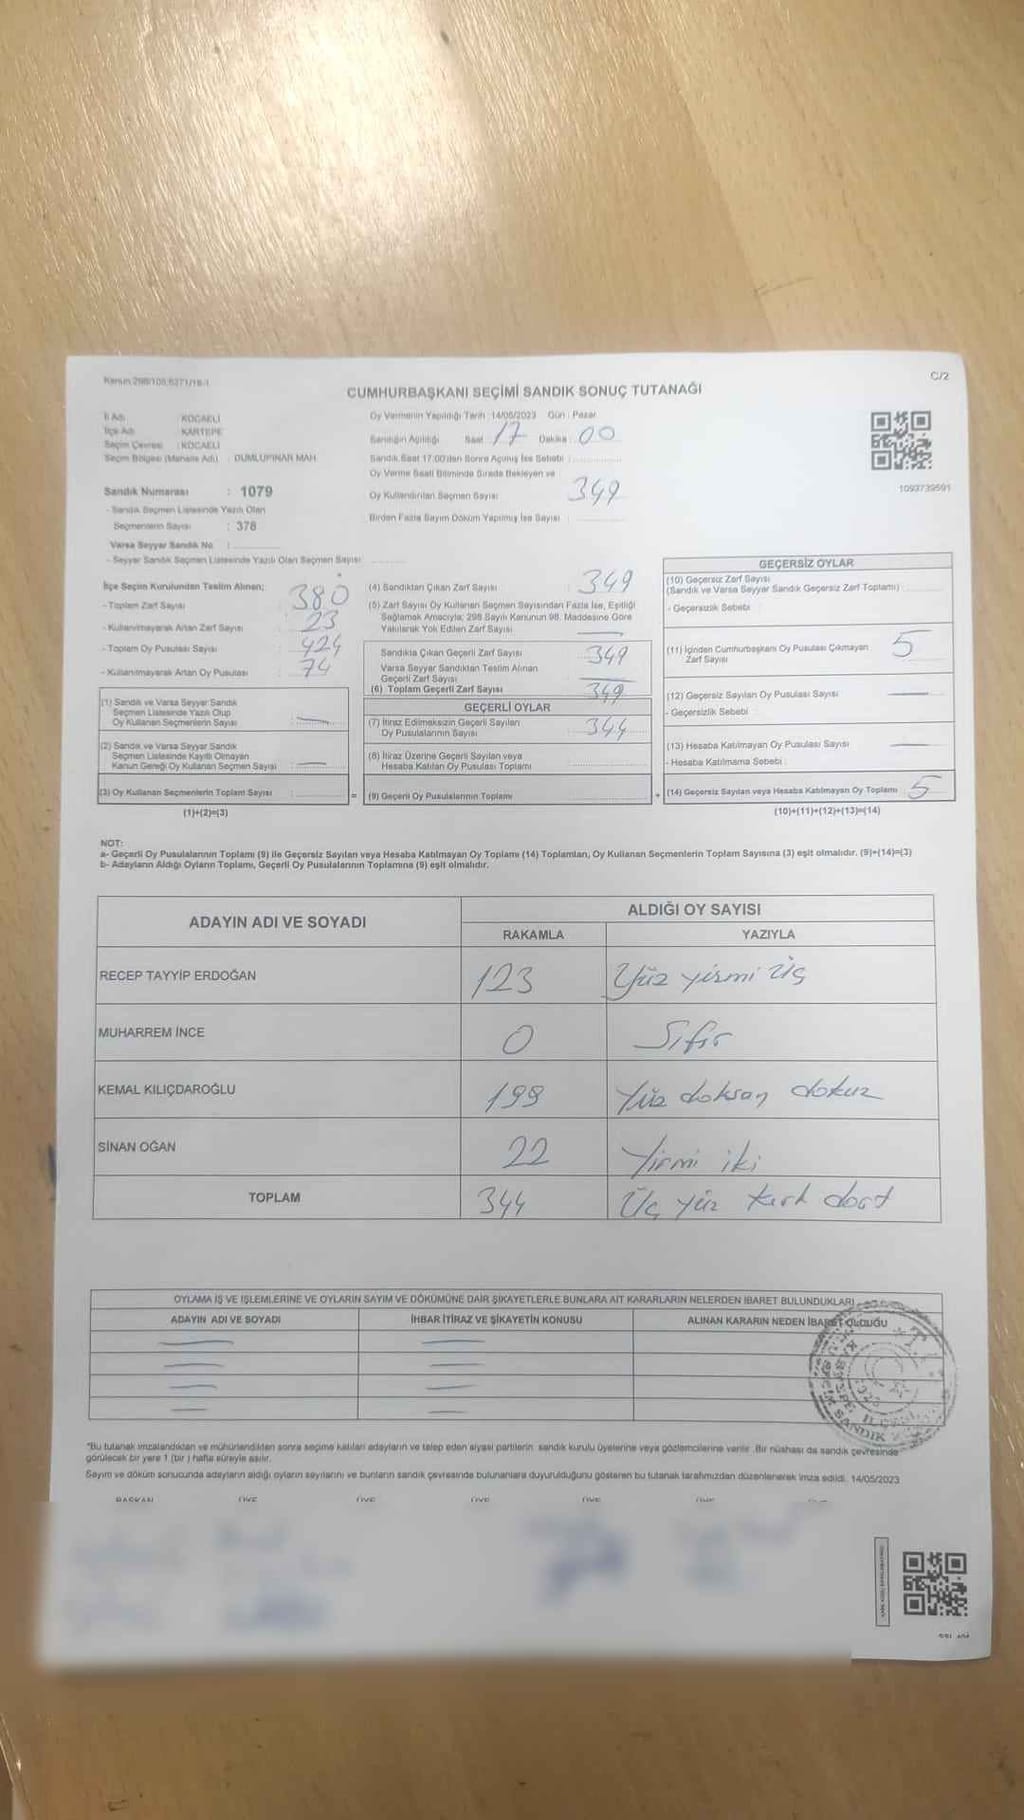 Kanun:298/105;6271/18-I
C/2
CUMHURBAŞKANI SEÇİMİ SANDIK SONUÇ TUTANAĞI
İl Adı : KOCAELİ
İlçe Adı : KARTEPE
Seçim Çevresi : KOCAELİ
Seçim Bölgesi (Mahalle Adı) : DUMLUPINAR MAH.
Oy Vermenin Yapıldığı Tarih : 14/05/2023 Gün : Pazar
Sandığın Açıldığı Saat : 17 Dakika : 00
Sandık Saat 17:00'den Sonra Açılmış İse Sebebi :
Oy Verme Saati Bitiminde Sırada Bekleyen ve
Oy Kullandırılan Seçmen Sayısı 349
Birden Fazla Sayım Döküm Yapılmış İse Sayısı :
1093739591
Sandık Numarası : 1079
- Sandık Seçmen Listesinde Yazılı Olan
Seçmenlerin Sayısı : 378
Varsa Seyyar Sandık No :
- Seyyar Sandık Seçmen Listesinde Yazılı Olan Seçmen Sayısı:
İlçe Seçim Kurulundan Teslim Alınan;
- Toplam Zarf Sayısı : 380
- Kullanılmayarak Artan Zarf Sayısı : 23
- Toplam Oy Pusulası Sayısı : 424
- Kullanılmayarak Artan Oy Pusulası : 74
(1) Sandık ve Varsa Seyyar Sandık
Seçmen Listesinde Yazılı Olup
Oy Kullanan Seçmenlerin Sayısı :
(2) Sandık ve Varsa Seyyar Sandık
Seçmen Listesinde Kayıtlı Olmayan
Kanun Gereği Oy Kullanan Seçmen Sayısı :
(3) Oy Kullanan Seçmenlerin Toplam Sayısı :
(1)+(2)=(3)
(4) Sandıktan Çıkan Zarf Sayısı : 349
(5) Zarf Sayısı Oy Kullanan Seçmen Sayısından Fazla İse, Eşitliği
Sağlamak Amacıyla; 298 Sayılı Kanunun 98. Maddesine Göre
Yakılarak Yok Edilen Zarf Sayısı
Sandıkta Çıkan Geçerli Zarf Sayısı : 349
Varsa Seyyar Sandıktan Teslim Alınan
Geçerli Zarf Sayısı :
(6) Toplam Geçerli Zarf Sayısı 349
GEÇERLİ OYLAR
(7) İtiraz Edilmeksizin Geçerli Sayılan
Oy Pusulalarının Sayısı : 344
(8) İtiraz Üzerine Geçerli Sayılan veya
Hesaba Katılan Oy Pusulası Toplamı
= (9) Geçerli Oy Pusulalarının Toplamı
GEÇERSİZ OYLAR
(10) Geçersiz Zarf Sayısı
(Sandık ve Varsa Seyyar Sandık Geçersiz Zarf Toplamı)
- Geçersizlik Sebebi :
(11) İçinden Cumhurbaşkanı Oy Pusulası Çıkmayan
Zarf Sayısı 5
(12) Geçersiz Sayılan Oy Pusulası Sayısı
- Geçersizlik Sebebi :
(13) Hesaba Katılmayan Oy Pusulası Sayısı
- Hesaba Katılmama Sebebi :
+ (14) Geçersiz Sayılan veya Hesaba Katılmayan Oy Toplamı 5
(10)+(11)+(12)+(13)=(14)
NOT:
a- Geçerli Oy Pusulalarının Toplamı (9) ile Geçersiz Sayılan veya Hesaba Katılmayan Oy Toplamı (14) Toplamları, Oy Kullanan Seçmenlerin Toplam Sayısına (3) eşit olmalıdır. (9)+(14)=(3)
b- Adayların Aldığı Oyların Toplamı, Geçerli Oy Pusulalarının Toplamına (9) eşit olmalıdır.
ADAYIN ADI VE SOYADI
ALDIĞI OY SAYISI
RAKAMLA YAZIYLA
RECEP TAYYİP ERDOĞAN 123 Yüz yirmi üç
MUHARREM İNCE 0 Sıfır
KEMAL KILIÇDAROĞLU 199 Yüz doksan dokuz
SİNAN OĞAN 22 Yirmi iki
TOPLAM 344 Üç yüz kırk dört
OYLAMA İŞ VE İŞLEMLERİNE VE OYLARIN SAYIM VE DÖKÜMÜNE DAİR ŞİKAYETLERLE BUNLARA AİT KARARLARIN NELERDEN İBARET BULUNDUKLARI
ADAYIN ADI VE SOYADI İHBAR İTİRAZ VE ŞİKAYETİN KONUSU ALINAN KARARIN NEDEN İBARET OLDUĞU
*Bu tutanak imzalandıktan ve mühürlendikten sonra seçime katılan adayların ve talep eden siyasi partilerin sandık kurulu üyelerine veya gözlemcilerine verilir. Bir nüshası da sandık çevresinde
görülecek bir yere 1 (bir) hafta süreyle asılır.
Sayım ve döküm sonucunda adayların aldığı oyların sayılarını ve bunların sandık çevresinde bulunanlara duyurulduğunu gösteren bu tutanak tarafımızdan düzenlenerek imza edildi. 14/05/2023
BAŞKAN ÜYE ÜYE ÜYE ÜYE ÜYE